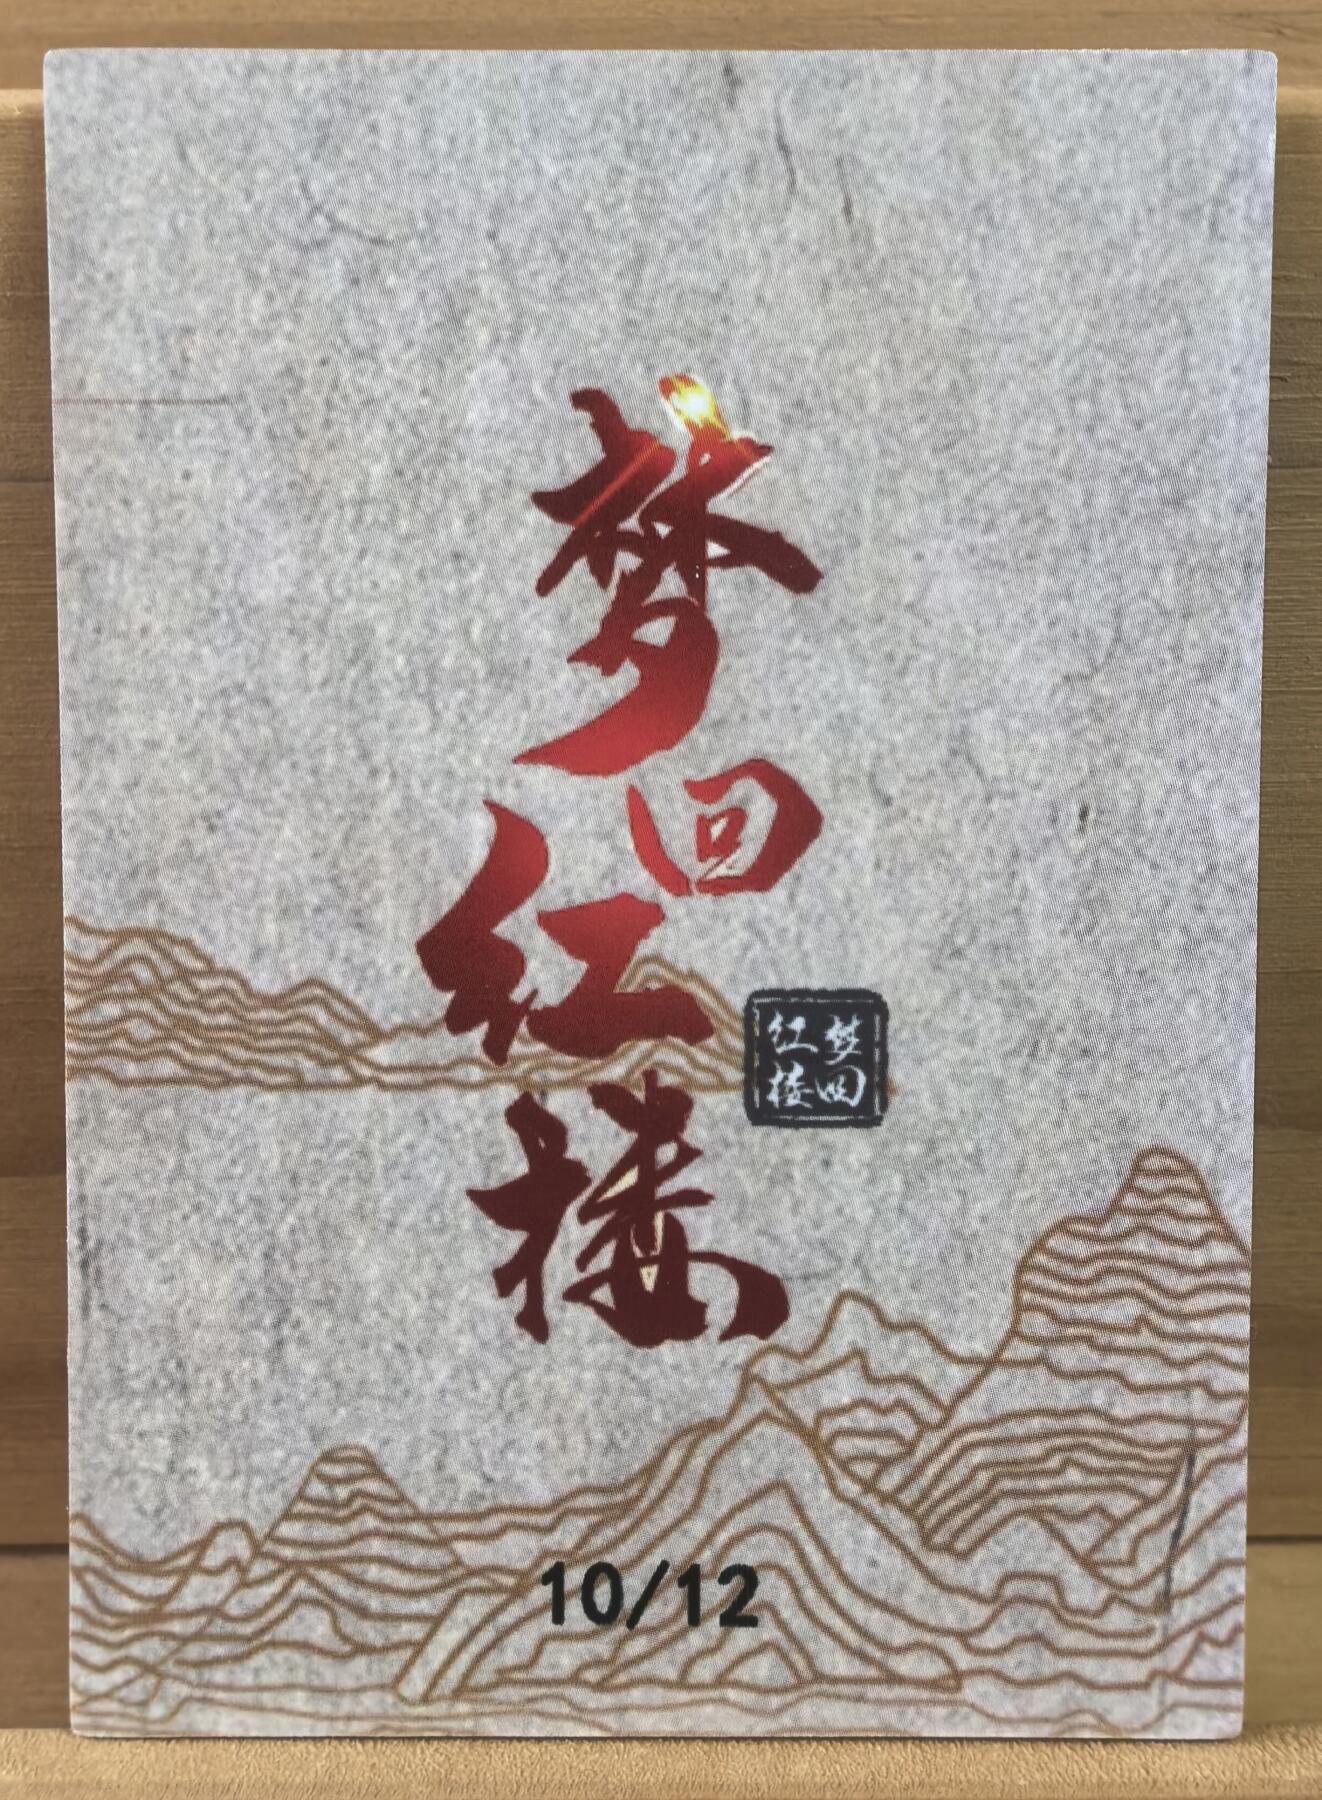 梦回红楼
梦回
红楼
10/12